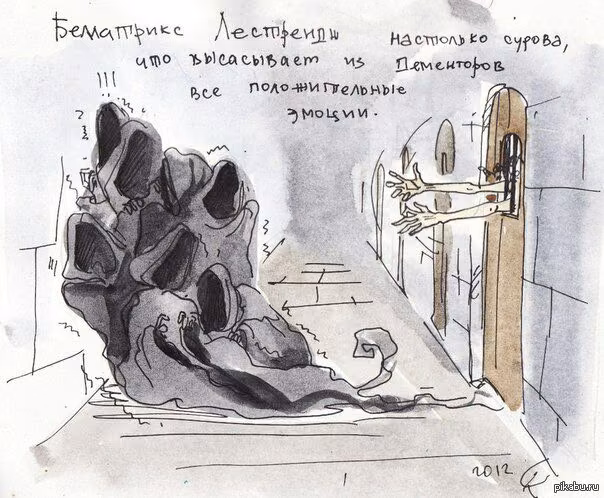 Бематрикс Лестрендж настолько сурова,
что высасывает из Дементоров
все положительные
эмоции.
!!!
?
2012
pikabu.ru